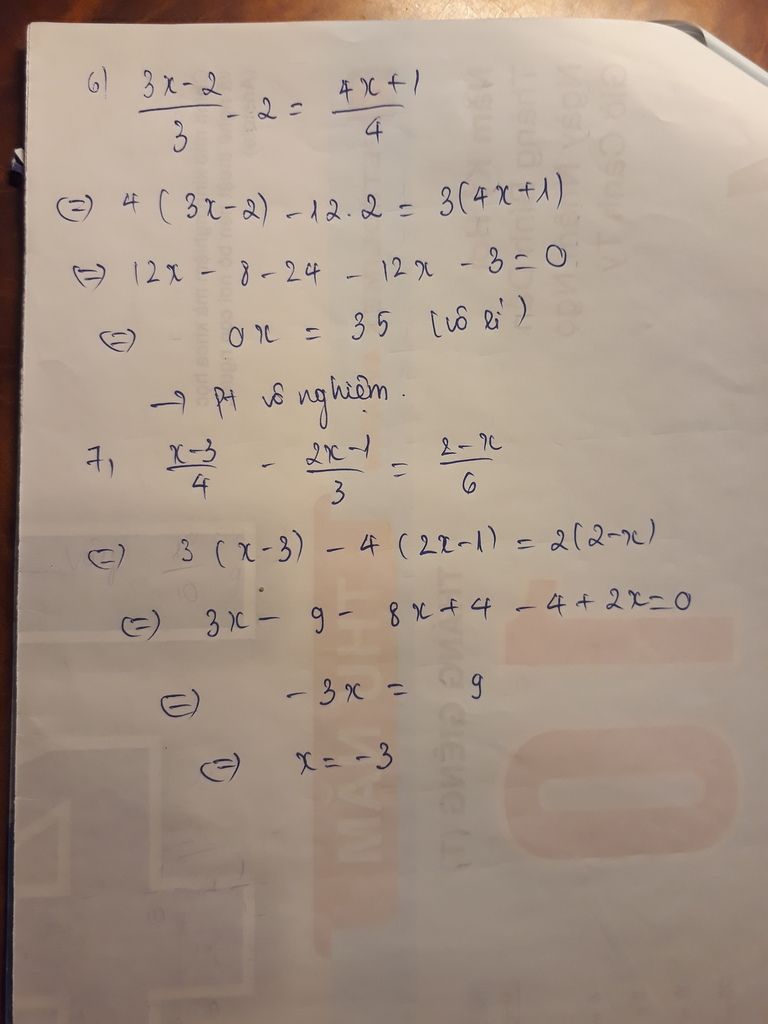 6) (3x-2)/3 - 2 = (4x+1)/4
(=) 4 ( 3x-2) - 12.2 = 3(4x+1)
(=) 12x - 8 - 24 - 12x - 3 = 0
(=) 0x = 35 (vô lí)
→ pt vô nghiệm.
7, (x-3)/4 - (2x-1)/3 = (2-x)/6
(=) 3 (x-3) - 4 (2x-1) = 2(2-x)
(=) 3x - 9 - 8x + 4 - 4 + 2x = 0
(=) -3x = 9
(=) x = -3
THỨ NĂM
THÁNG GIÊNG (T)
10